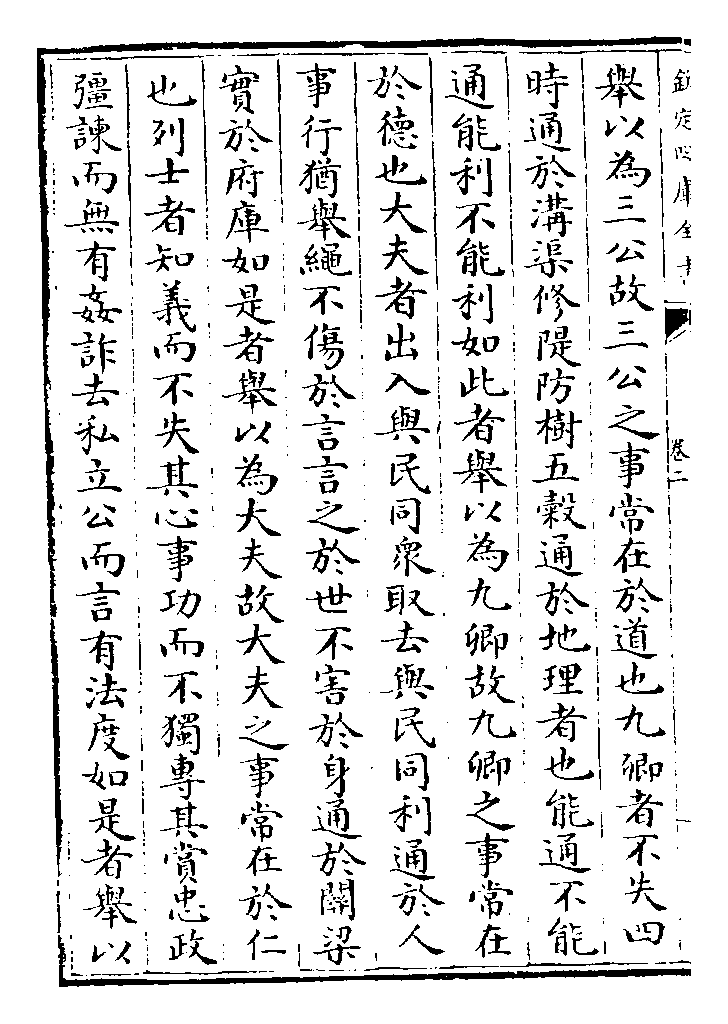 欽定四庫全書
卷二
舉以為三公故三公之事常在於道也九卿者不失四
時通於溝渠修隄防樹五穀通於地理者也能通不能
通能利不能利如此者舉以為九卿故九卿之事常在
於德也大夫者出入與民同衆取去與民同利通於人
事行猶舉繩不傷於言言之於世不害於身通於關梁
實於府庫如是者舉以為大夫故大夫之事常在於仁
也列士者知義而不失其心事功而不獨專其賞忠政
彊諫而無有姦詐去私立公而言有法度如是者舉以